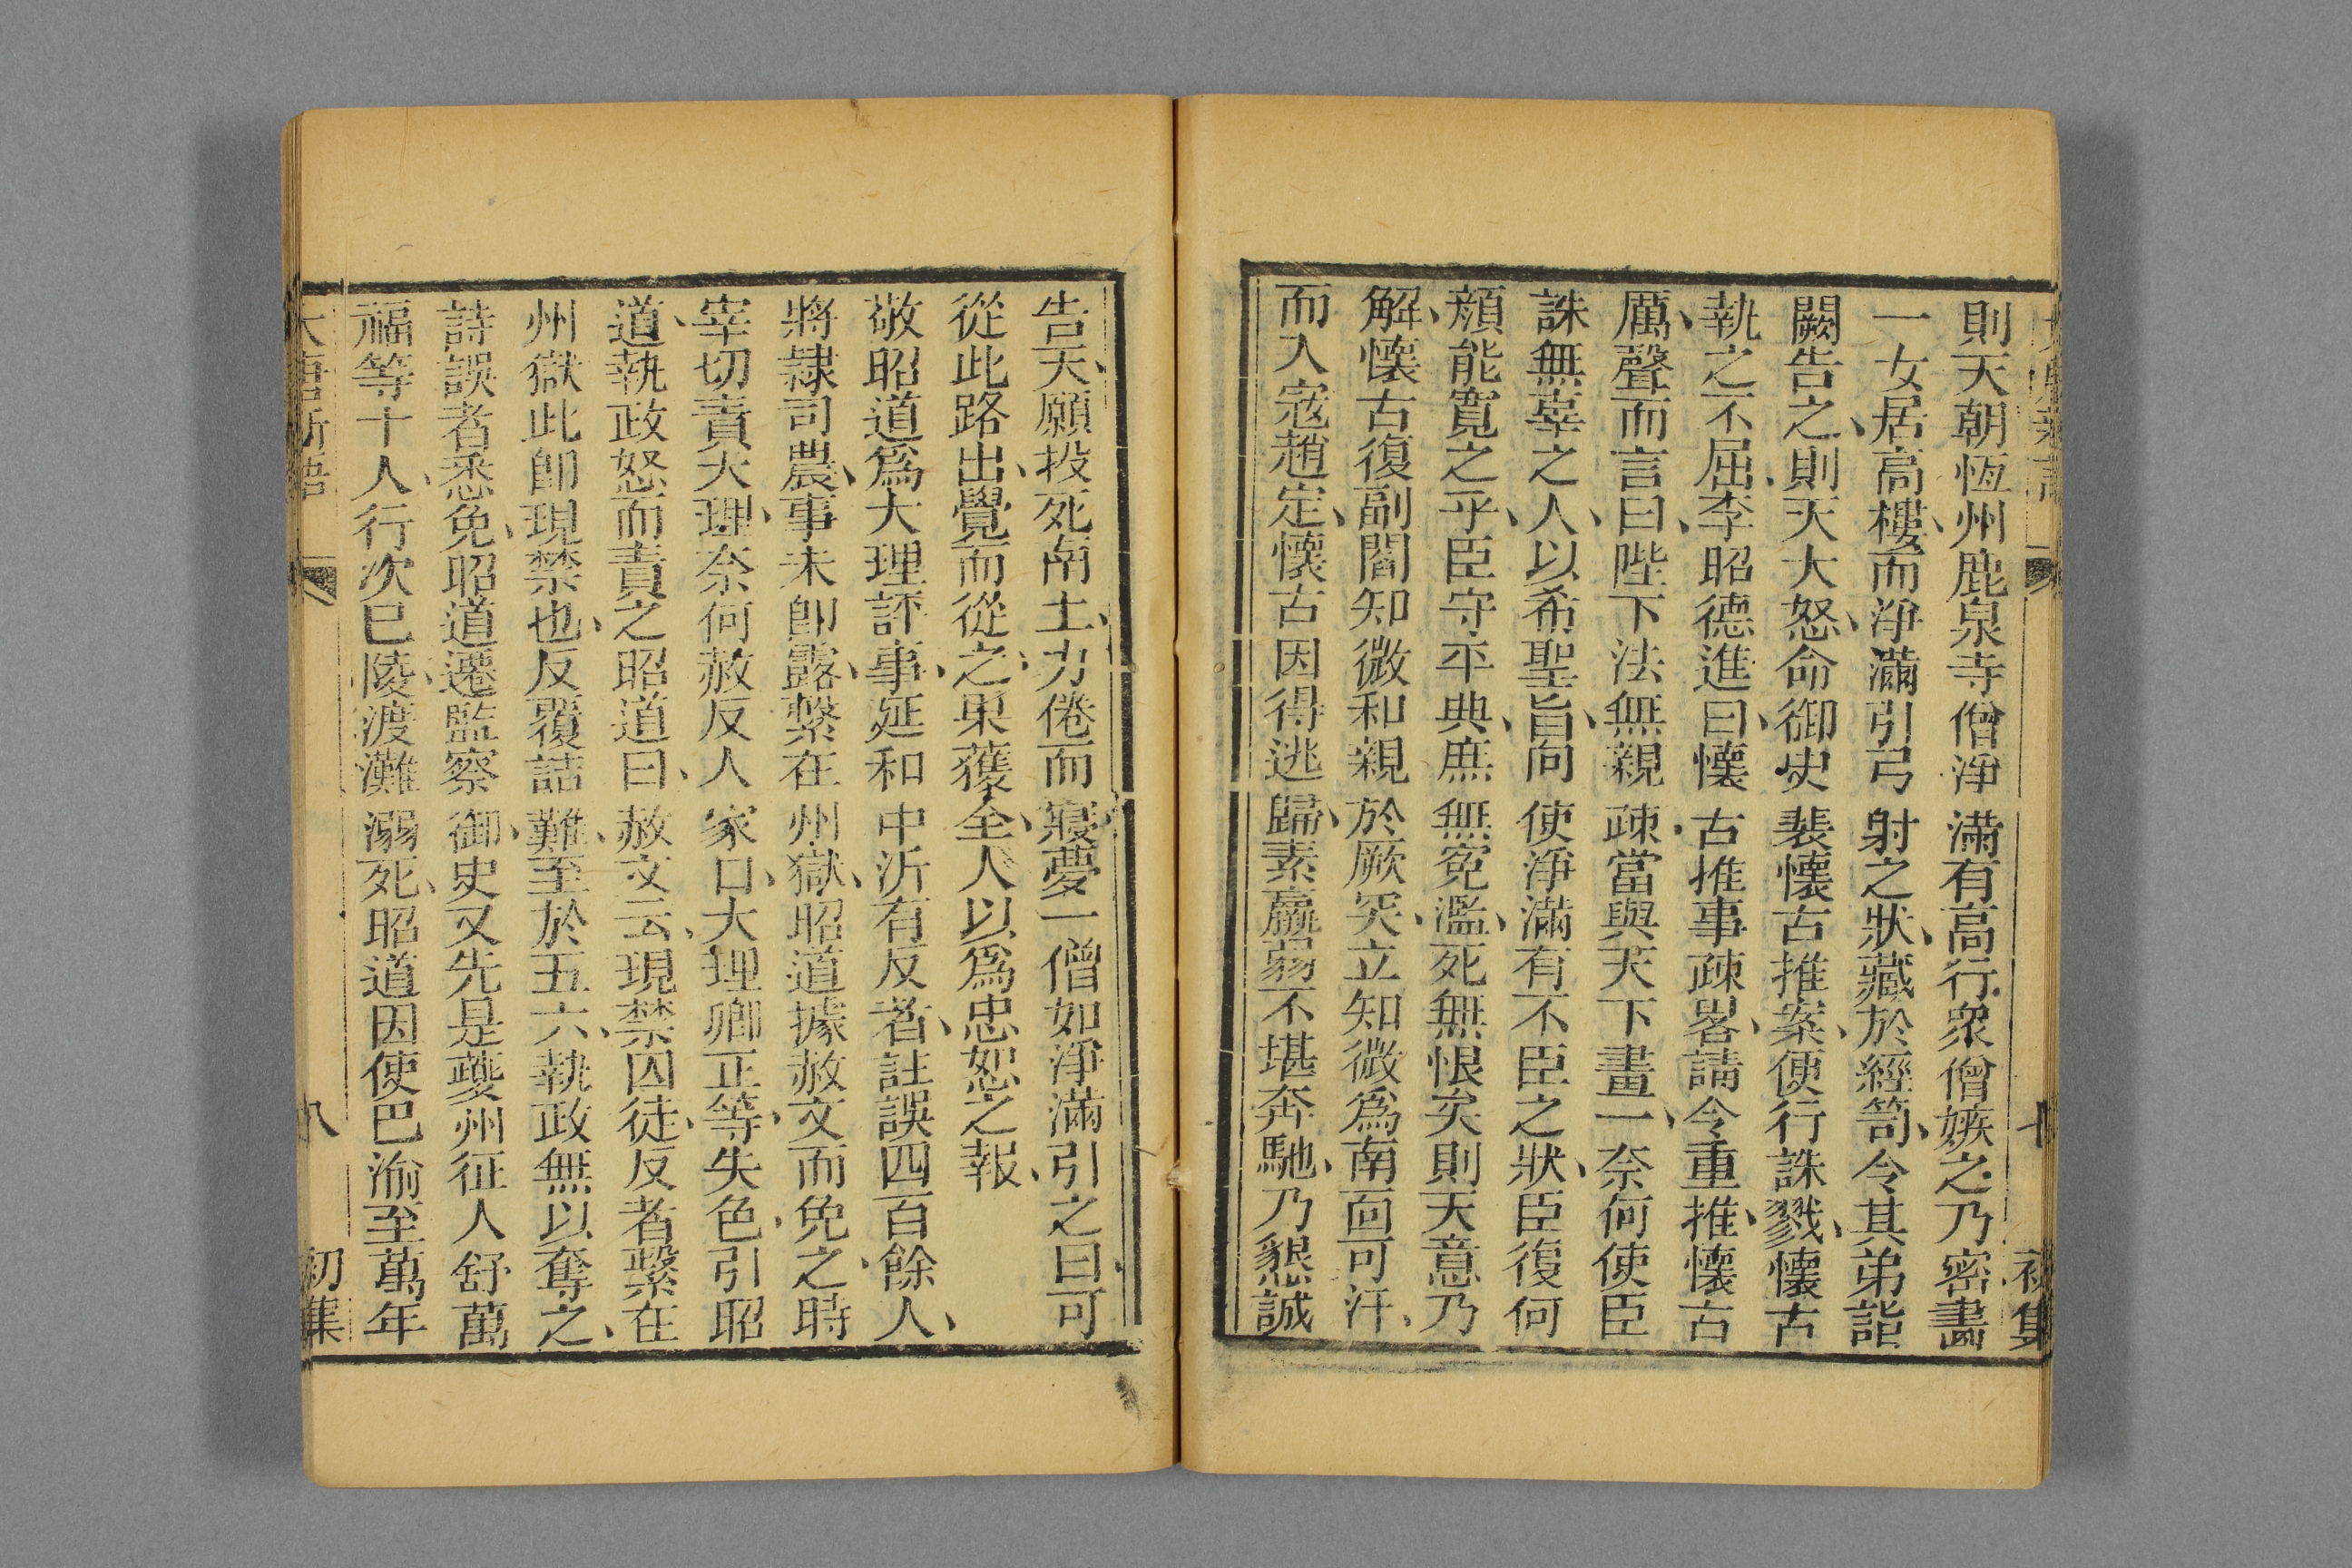 則天朝恆州鹿泉寺僧淨滿有高行衆僧嫉之乃密畫
一女居高樓、而淨滿引弓射之狀、藏於經笥、令其弟詣
闕告之、則天大怒、命御史裴懷古推案、便行誅戮、懷古
執之不屈、李昭德進曰、懷古推事疎畧、請令重推、懷古
厲聲而言曰、陛下法無親疎、當與天下畫一、奈何使臣
誅無辜之人、以希聖旨、向使淨滿有不臣之狀、臣復何
顏能寬之乎、臣守平典、庶無寃濫、死無恨矣則天意乃
解、懷古復副閻知微和親於厥突、立知微爲南面可汗、
而入寇趙定、懷古因得逃歸、素羸弱不堪奔馳、乃懇誠
告天、願投死南土、力倦而寢、夢一僧如淨滿引之曰、可
從此路出、覺而從之、果獲全、人以爲忠恕之報、
敬昭道爲大理評事、延和中沂有反者、詿誤四百餘人、
將隸司農、事未卽露、繫在州獄、昭道據赦文而免之、時
宰切責大理、奈何赦反人家口、大理卿正等、失色、引昭
道、執政怒而責之昭道曰、赦文云、現禁囚徒、反者繫在
州獄此卽現禁也、反覆詰難、至於五六、執政無以奪之、
詿誤者悉免、昭道遷監察御史又先是夔州征人舒萬
福等十人、行次巴陵、渡灘溺死、昭道因使巴渝至萬年
大唐新語 八 初集